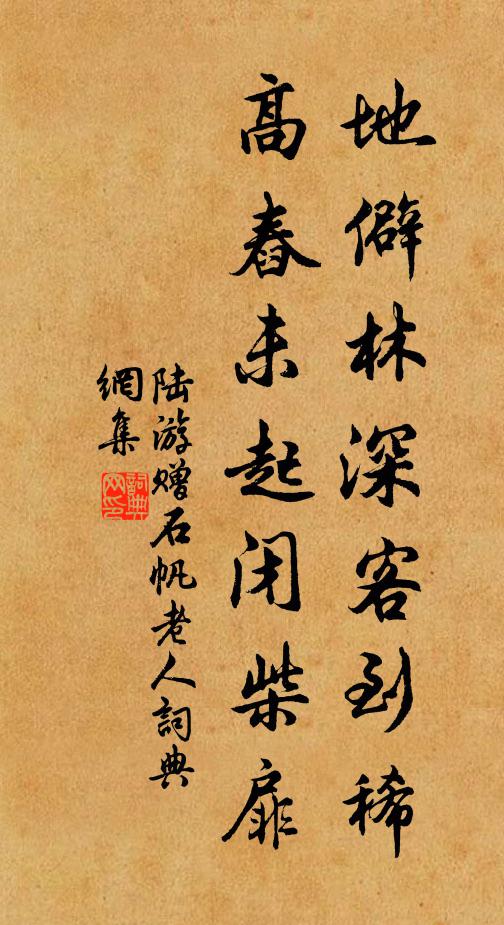 地僻林深客到稀
高舂未起闭柴扉
陆游赠石帆老人詞典
網集
詞典
网印